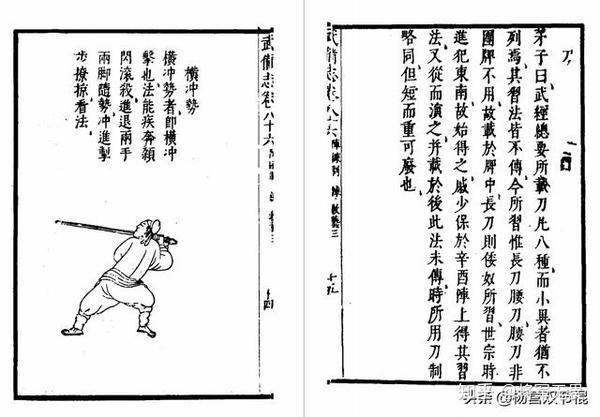 刀
茅子曰武經總要所載刀凡八種而小異者猶不
列焉其習法皆不傳今所習惟長刀腰刀腰刀非
團牌不用故載於牌中長刀則倭奴所習世宗時
進犯東南故始得之戚少保於辛酉陣上得其習
法又從而演之并載於後此法未傳時所用刀制
略同但短而重可廢也
武備志卷八十六 陣練制 練 教藝三
武備志卷八十六
十四
橫冲勢
橫冲勢者即橫冲
擊也法能疾奔
閃滾殺進退兩手
兩脚隨勢冲進掣
步撩掠看法
知乎
头条 @杨宫双节棍